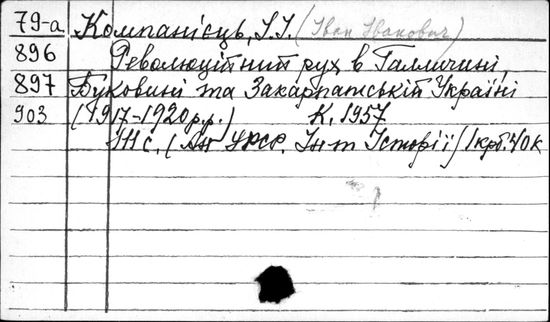 79-а Компанієць, І.І. (Іван Іванович)
896 Революційний рух в Галичині,
897 Буковині та Закарпатській Україні
903 (1917-1920 р.р.) К, 1957
111 с. (АН УРСР. Ін-т Історії) 1 крб. 40 к